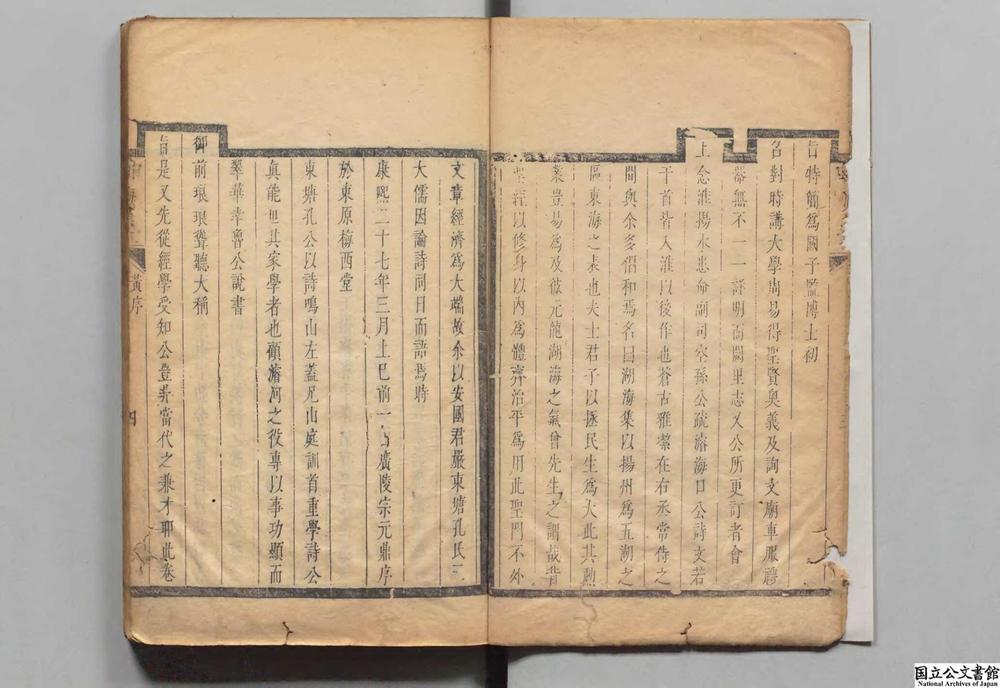 旨特簡為國子監博士初
召對時講大學周易得聖賢奧義及詢文廟車服禮
器無不一一詳明而闕里志又公所更訂者會
上念淮揚水患命副司空孫公疏濬海口公詩文若
干首皆入淮以後作也蒼古雅縈在右丞常侍之
間與余多倡和焉名曰湖海集以揚州為五湖之
區東海之表也夫士君子以拯民生為大此其勲
業豈易為及彼元龍湖海之氣曾先生之謂哉昔
聖經以修身以內為體齊治平為用此聖門不外
文章經濟為大端故余以安國君嚴東塘孔氏三
大儒因論詩同日而語焉時
康熙二十七年三月上巳前一日廣陵宗元鼎序
於東原梅西堂
東塘孔公以詩鳴山左蓋尼山庭訓首重學詩公
真能世其家學者也顧濬河之役專以事功顯而
翠華幸魯公說書
御前琅琅聳聽大稱
旨是又先從經學受知公豈非當代之兼才耶此卷
黃序
四
国立公文書館
National Archives of Japan